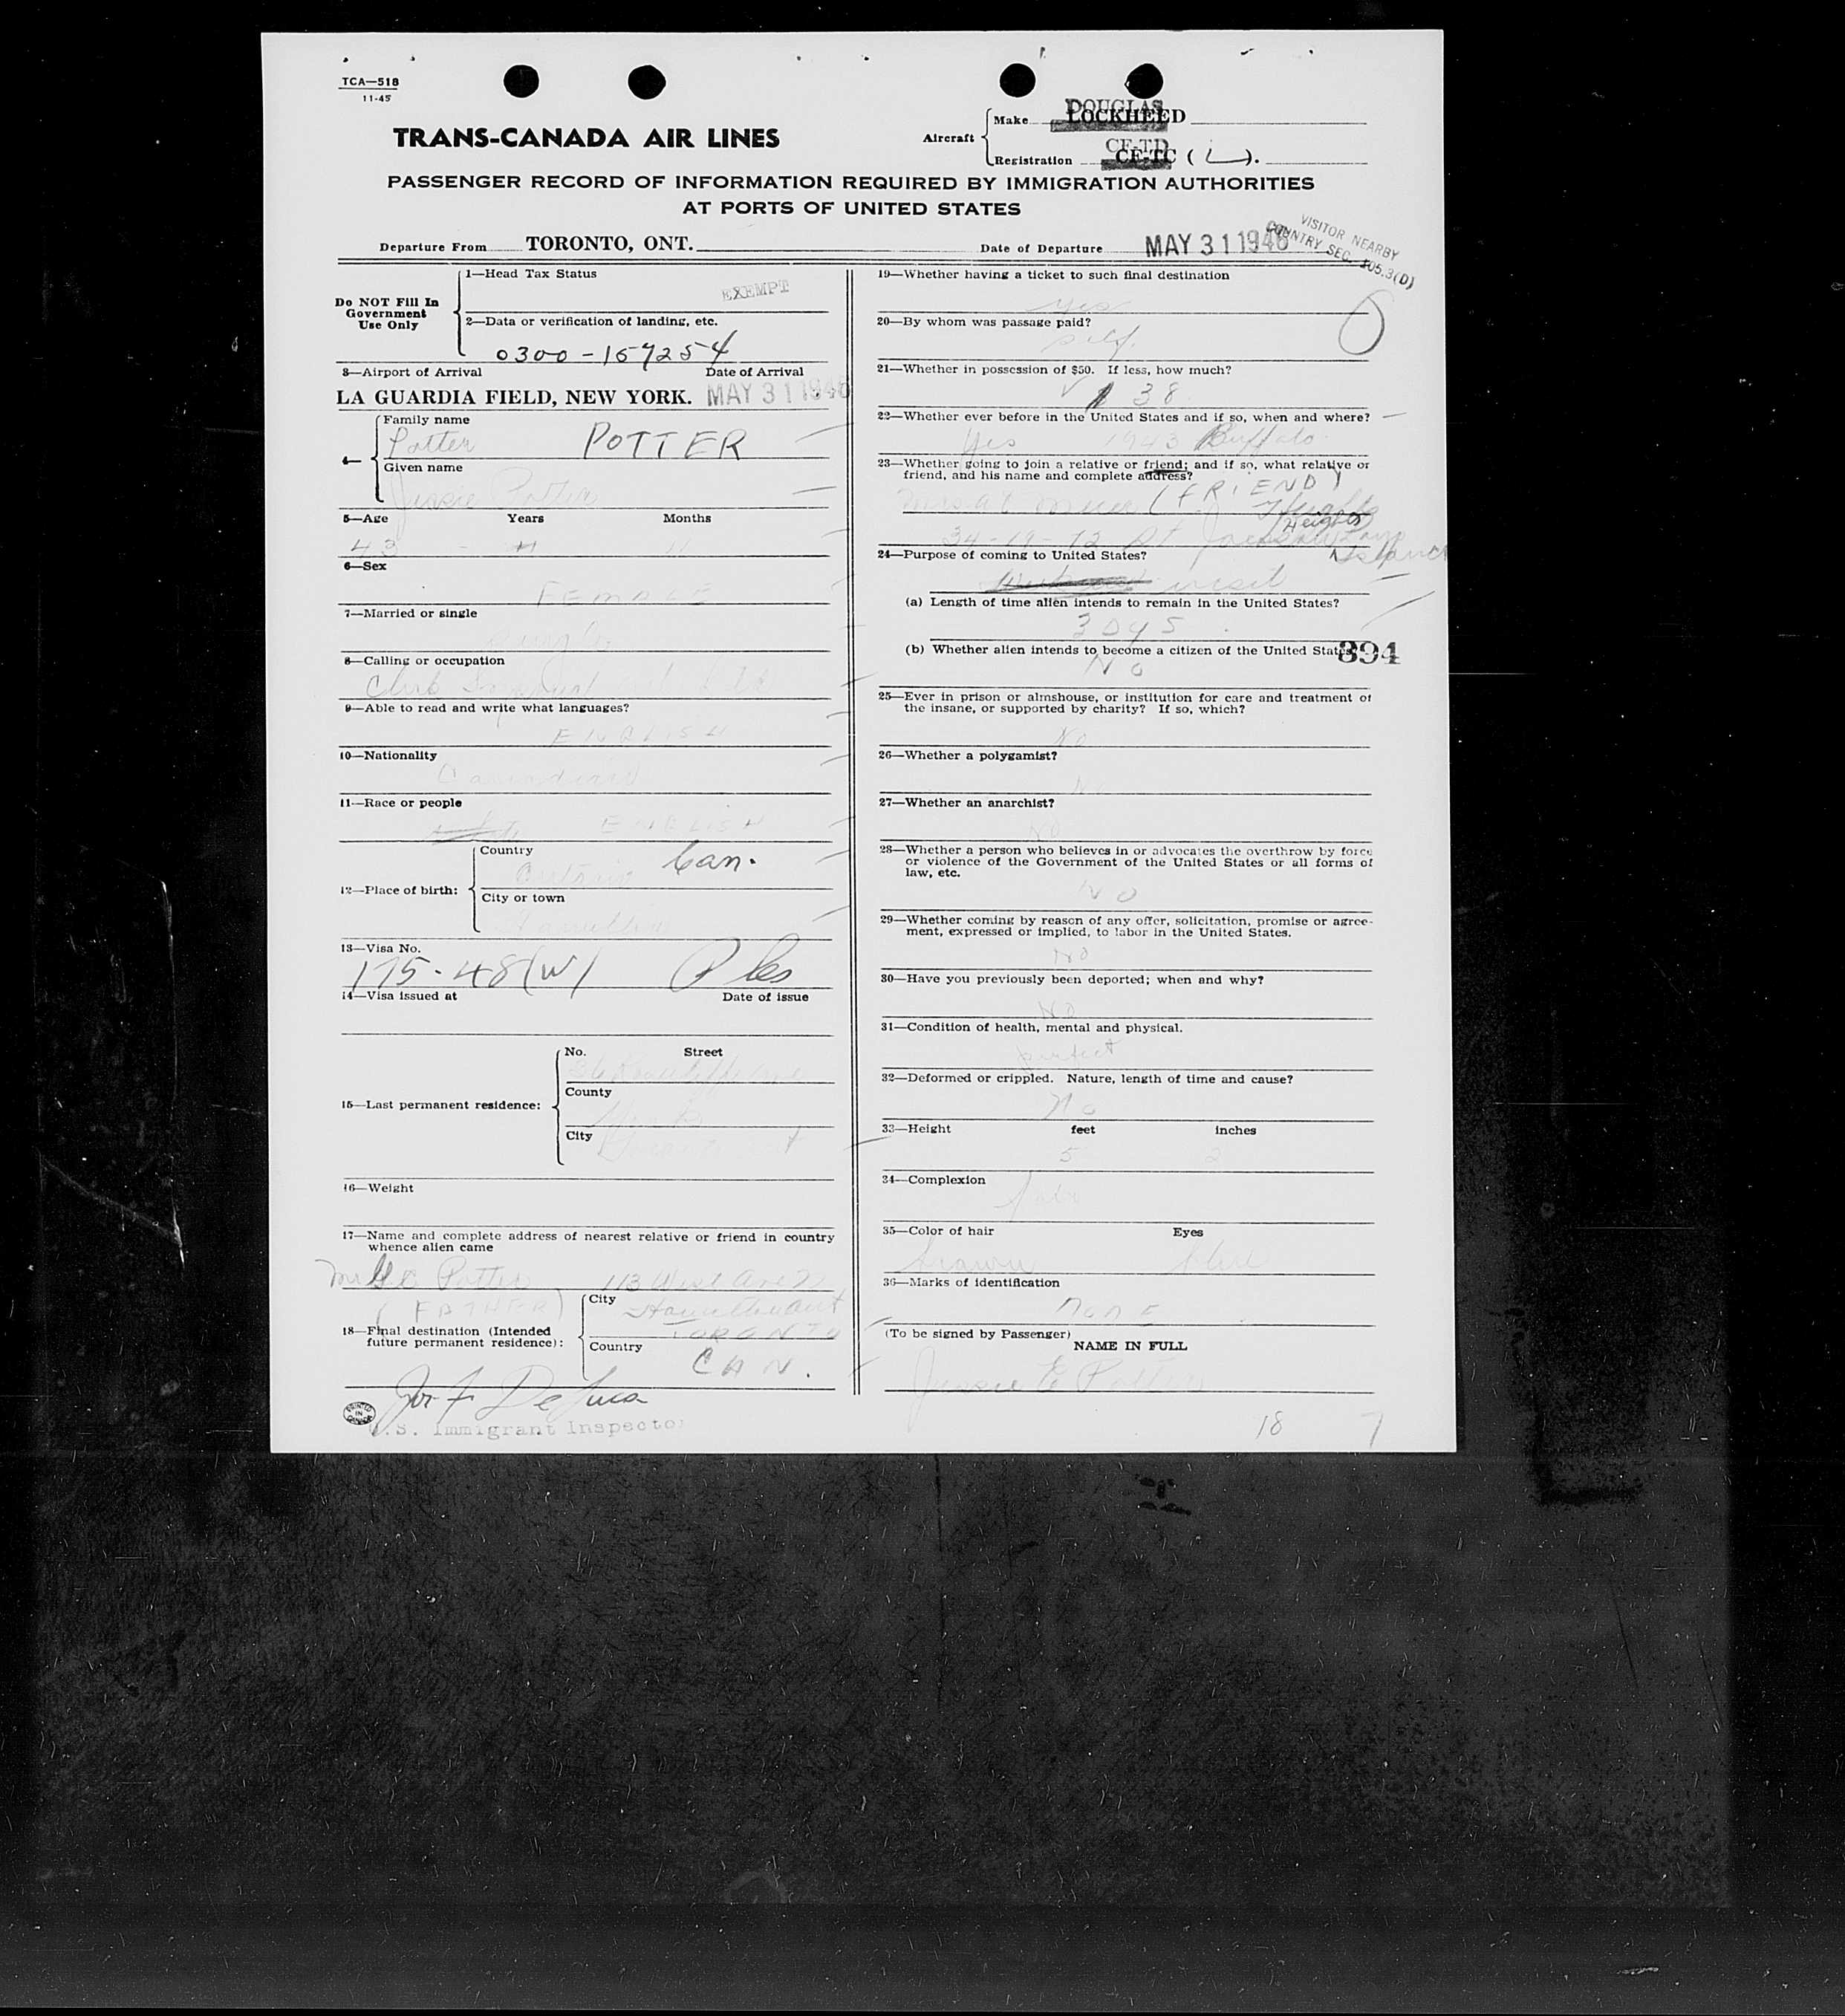 TCA—518
11-45
TRANS-CANADA AIR LINES
Aircraft
Make
DOUGLAS
LOCKHEED
Registration
CF-TD
CF-TC ( L ).
PASSENGER RECORD OF INFORMATION REQUIRED BY IMMIGRATION AUTHORITIES
AT PORTS OF UNITED STATES
VISITOR NEARBY
COUNTRY SEC. 105.3(D)
Departure From TORONTO, ONT.
Date of Departure MAY 31 1946
Do NOT Fill In
Government
Use Only
1—Head Tax Status
EXEMPT
2—Data or verification of landing, etc.
0300-157254
3—Airport of Arrival Date of Arrival
LA GUARDIA FIELD, NEW YORK. MAY 31 1946
4—
Family name
Potter POTTER
Given name
Jessie Potter
5—Age Years Months
43
6—Sex
FEMALE
7—Married or single
single
8—Calling or occupation
9—Able to read and write what languages?
ENGLISH
10—Nationality
Canadian
11—Race or people
ENGLISH
12—Place of birth:
Country
Ontario Can.
City or town
Hamilton
13—Visa No.
175-48(W)
14—Visa issued at Date of issue
15—Last permanent residence:
No. Street
County
City
16—Weight
17—Name and complete address of nearest relative or friend in country
whence alien came
Potter 113 West Ave
(FATHER)
18—Final destination (Intended
future permanent residence):
City
Hamilton Ont
TORONTO
Country
CAN.
U.S. Immigrant Inspector
PRINTED IN CANADA
19—Whether having a ticket to such final destination
yes
20—By whom was passage paid?
self
6
21—Whether in possession of $50. If less, how much?
38
22—Whether ever before in the United States and if so, when and where?
Yes 1943 Buffalo
23—Whether going to join a relative or friend; and if so, what relative or
friend, and his name and complete address?
(FRIEND)
34-19-72 St Jackson Heights Long Island
24—Purpose of coming to United States?
visit
(a) Length of time alien intends to remain in the United States?
3 DYS
(b) Whether alien intends to become a citizen of the United States
394
No
25—Ever in prison or almshouse, or institution for care and treatment of
the insane, or supported by charity? If so, which?
No
26—Whether a polygamist?
No
27—Whether an anarchist?
No
28—Whether a person who believes in or advocates the overthrow by force
or violence of the Government of the United States or all forms of
law, etc.
NO
29—Whether coming by reason of any offer, solicitation, promise or agree-
ment, expressed or implied, to labor in the United States.
No
30—Have you previously been deported; when and why?
No
31—Condition of health, mental and physical.
perfect
32—Deformed or crippled. Nature, length of time and cause?
No
33—Height feet inches
5 2
34—Complexion
fair
35—Color of hair Eyes
brown blue
36—Marks of identification
NONE
(To be signed by Passenger)
NAME IN FULL
Jessie E Potter
18 7